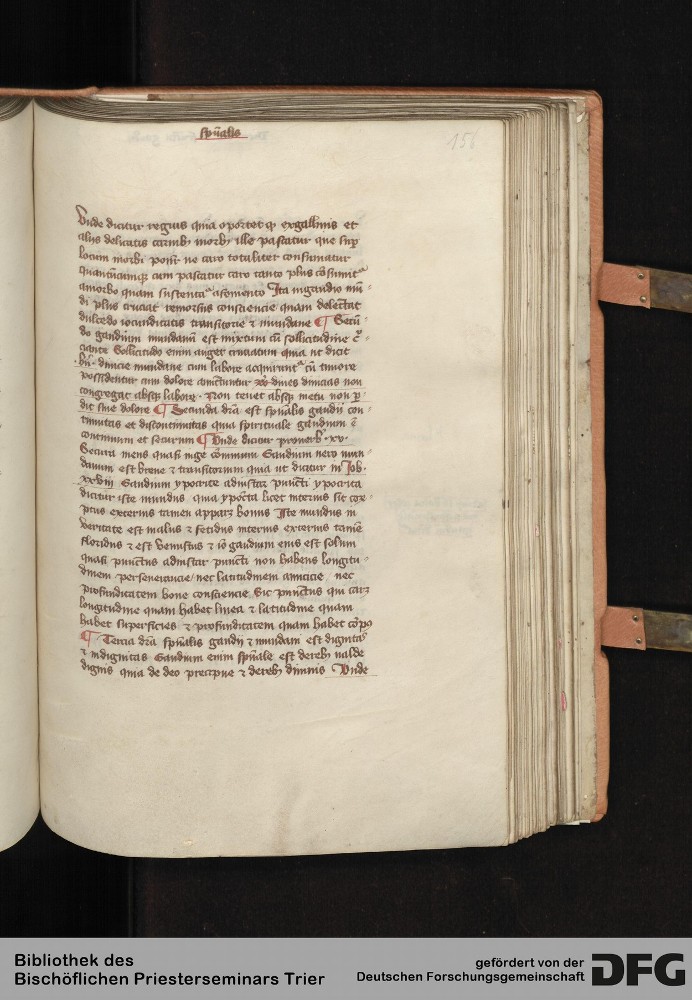 spũalis
156
Unde dicitur vegius quia oportet qɜ ex gallinis et
aliis delicatis carnibɜ morbɜ ille pascatur que suꝑ
locum morbi ponit̃ ne caro totaliter consumatur
quantũcumqɜ eam pascatur caro tanto plus cõsumit᷑
a morbo quam sustentat᷑ a fomento Ita in gaudio mũ-
di plus cruciat remorsus consciencie quam delectat
dulcedo iocunditatis transitorie ⁊ mundane ¶ Secũ-
do gaudium mundanũ est mixtum cũ sollicitudine c̃-
ciante Sollicitudo enim auget cruciatum quia ut dicit
bñ- diuicie mundane cum labore acquirunt᷑ cũ timore
possidentur cum dolore amittuntur diues diuicias non
congregat absqɜ labore · Non tenet absqɜ metu non ꝑ-
dit sine dolore ¶ Secunda dr̃a est spũalis gaudii con-
tinuitas et discontinuitas quia spirituale gaudium ẽ
continuum et securum ¶ Unde dicitur prouerbɜ · xv ·
Secura mens quasi iuge cõuiuium Gaudium vero mun-
danum est breue ⁊ transitorium quia ut dicitur in Job ·
Gaudium ypocrite ad instar puncti ypocrita
dicitur iste mundus quia ypocrita licet interius sit cor-
ptus exterius tamen apparɜ bonus Iste mundus in
veritate est malus ⁊ fetidus interius exterius tamẽ
floridus ⁊ est venustus ⁊ iõ gaudium eius est solum
quasi punctus ad instar puncti non habens longitu-
dinem perseuerancie / nec latitudinem amicicie / nec
profunditatem bone consciencie Sic punctus qui carɜ
longitudine quam habet linea ⁊ latitudine quam
habet superficies ⁊ profunditatem quam habet corpꝰ
¶ Tercia dr̃a spũalis gaudij ⁊ mundani est dignitas
⁊ indignitas Gaudium enim spũale est de rebɜ valde
dignis quia de deo precipue ⁊ de rebɜ diuinis Unde
Bibliothek des
Bischöflichen Priesterseminars Trier
gefördert von der
Deutschen Forschungsgemeinschaft
DFG